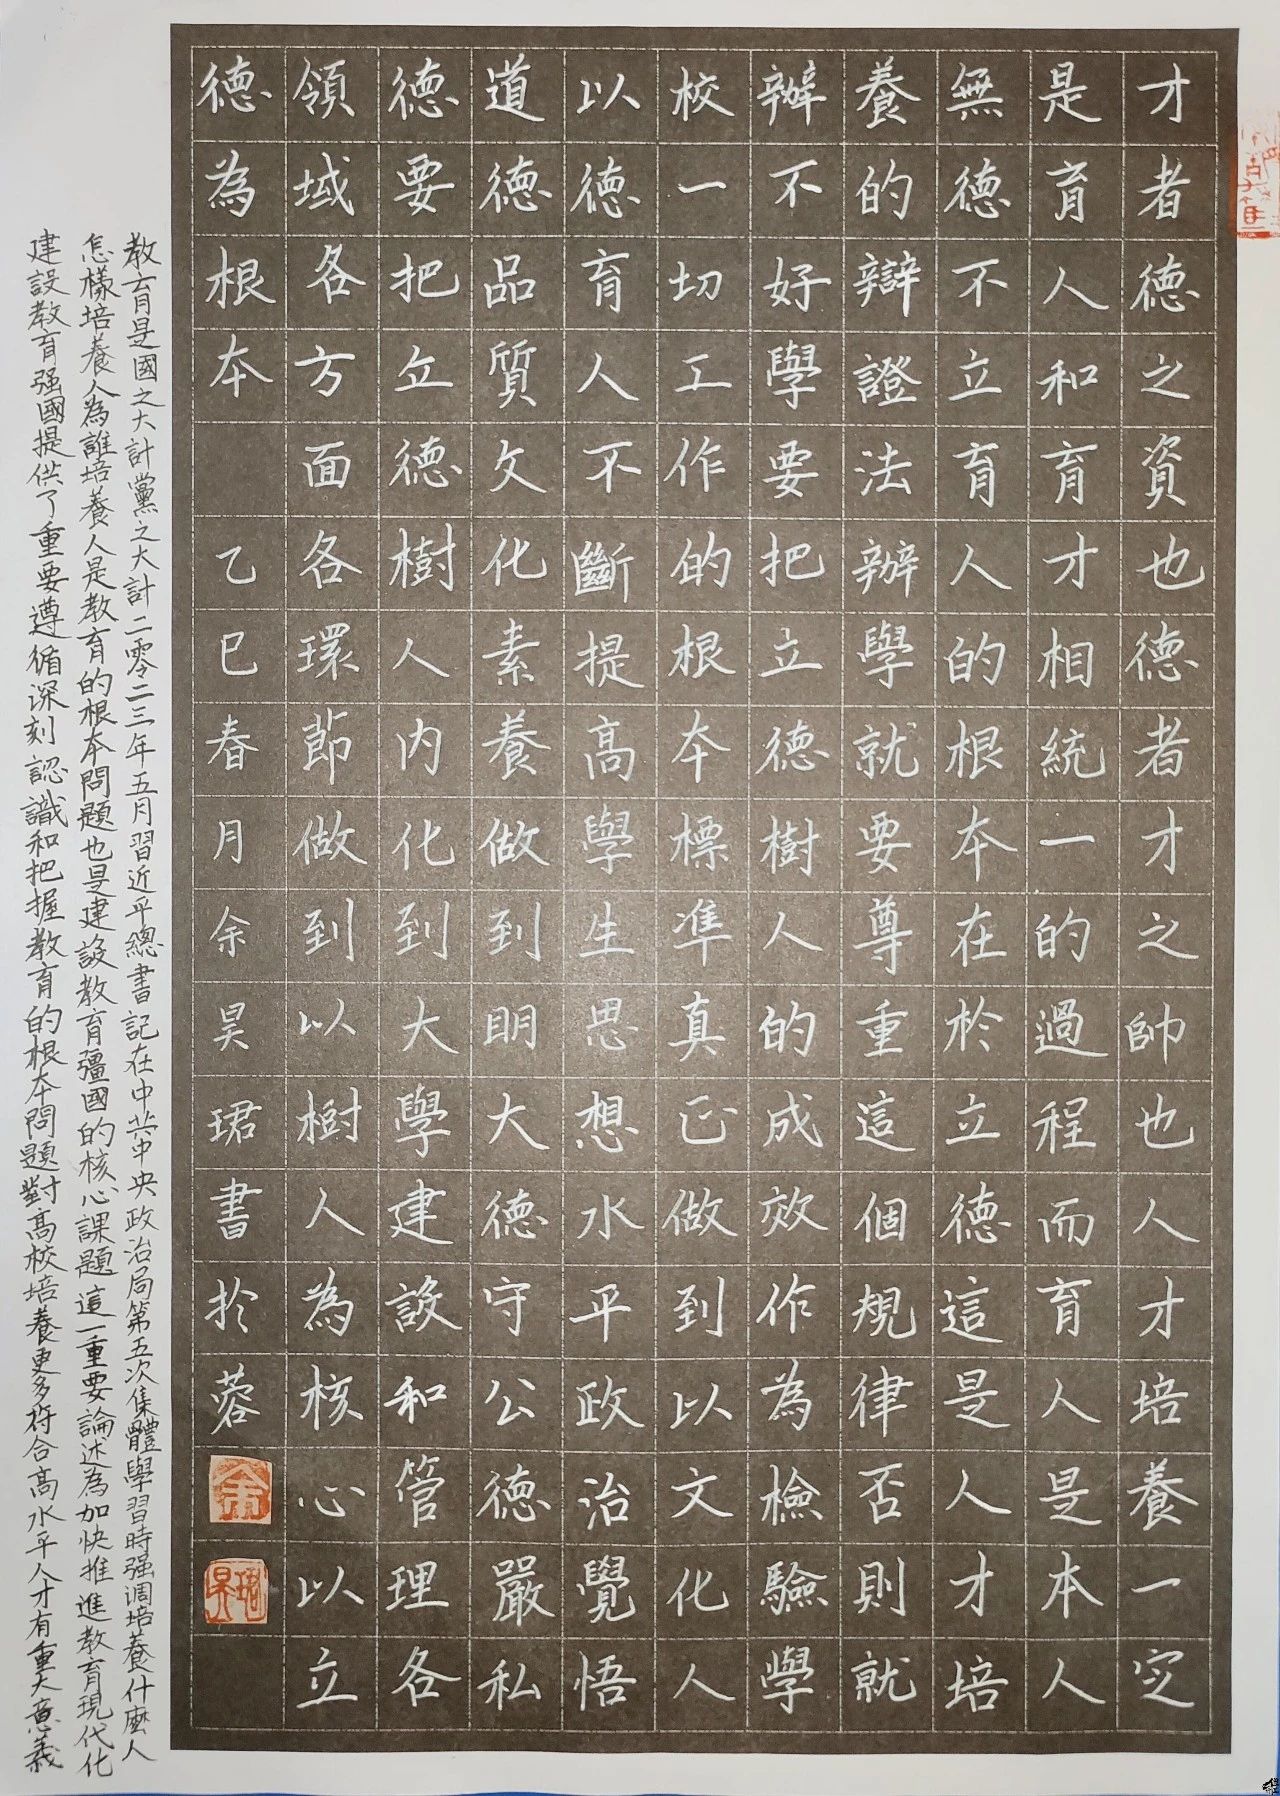 才者德之資也德者才之帥也人才培養一定
是育人和育才相統一的過程而育人是本人
無德不立育人的根本在於立德這是人才培
養的辯證法辦學就要尊重這個規律否則就
辦不好學要把立德樹人的成效作為檢驗學
校一切工作的根本標準真正做到以文化人
以德育人不斷提高學生思想水平政治覺悟
道德品質文化素養做到明大德守公德嚴私
德要把立德樹人內化到大學建設和管理各
領域各方面各環節做到以樹人為核心以立
德為根本 乙巳春月余昊珺書於蓉
余
教育是國之大計黨之大計二零二三年五月習近平總書記在中共中央政治局第五次集體學習時强调培養什麼人
怎樣培養人為誰培養人是教育的根本問題也是建設教育彊國的核心課題這一重要論述為加快推進教育現代化
建設教育强國提供了重要遵循深刻認識和把握教育的根本問題對高校培養更多符合高水平人才有重大意義